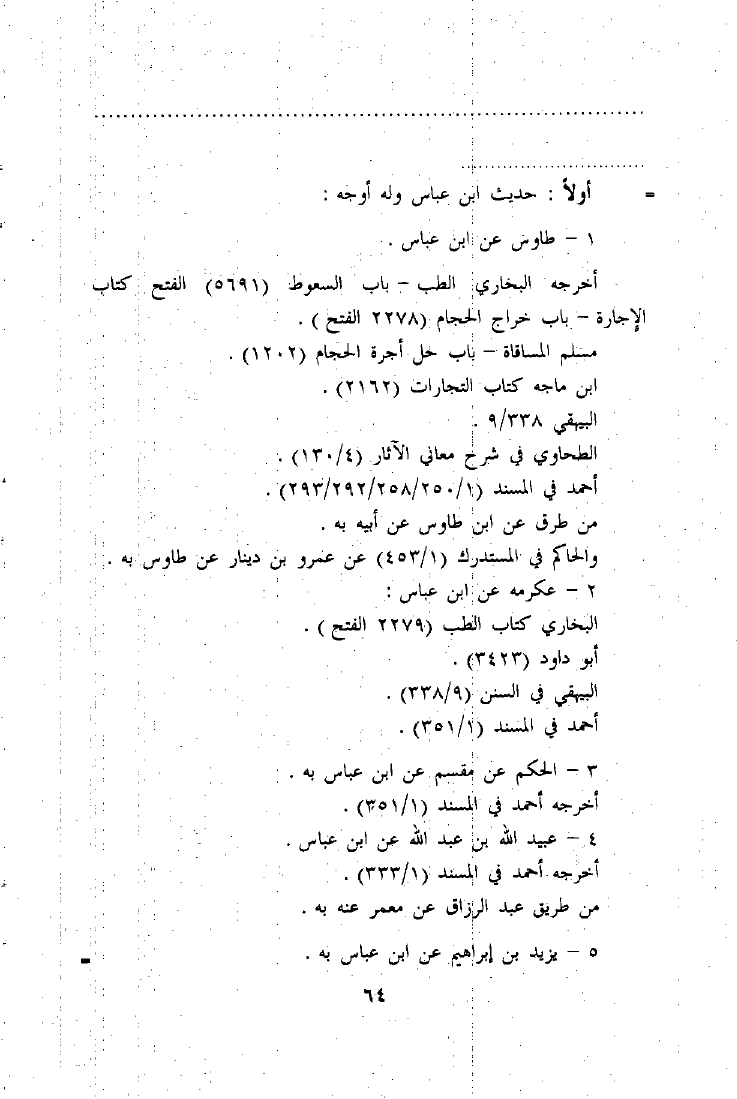 = أولاً : حديث ابن عباس وله أوجه :
١ - طاوس عن ابن عباس .
أخرجه البخاري الطب - باب السعوط (٥٦٩١) الفتح كتاب
الإجارة - باب خراج الحجام (٢٢٧٨ الفتح) .
مسلم المساقاة - باب حل أجرة الحجام (١٢٠٢) .
ابن ماجه كتاب التجارات (٢١٦٢) .
البيهقي ٩/٣٣٨ .
الطحاوي في شرح معاني الآثار (١٣٠/٤) .
أحمد في المسند (٢٩٣/٢٩٢/٢٥٨/٢٥٠/١) .
من طرق عن ابن طاوس عن أبيه به .
والحاكم في المستدرك (٤٥٣/١) عن عمرو بن دينار عن طاوس به .
٢ - عكرمه عن ابن عباس :
البخاري كتاب الطب (٢٢٧٩ الفتح) .
أبو داود (٣٤٢٣) .
البيهقي في السنن (٣٣٨/٩) .
أحمد في المسند (٣٥١/١) .
٣ - الحكم عن مقسم عن ابن عباس به .
أخرجه أحمد في المسند (٣٥١/١) .
٤ - عبيد الله بن عبد الله عن ابن عباس .
أخرجه أحمد في المسند (٣٣٣/١) .
من طريق عبد الرزاق عن معمر عنه به .
٥ - يزيد بن إبراهيم عن ابن عباس به .
=
٦٤